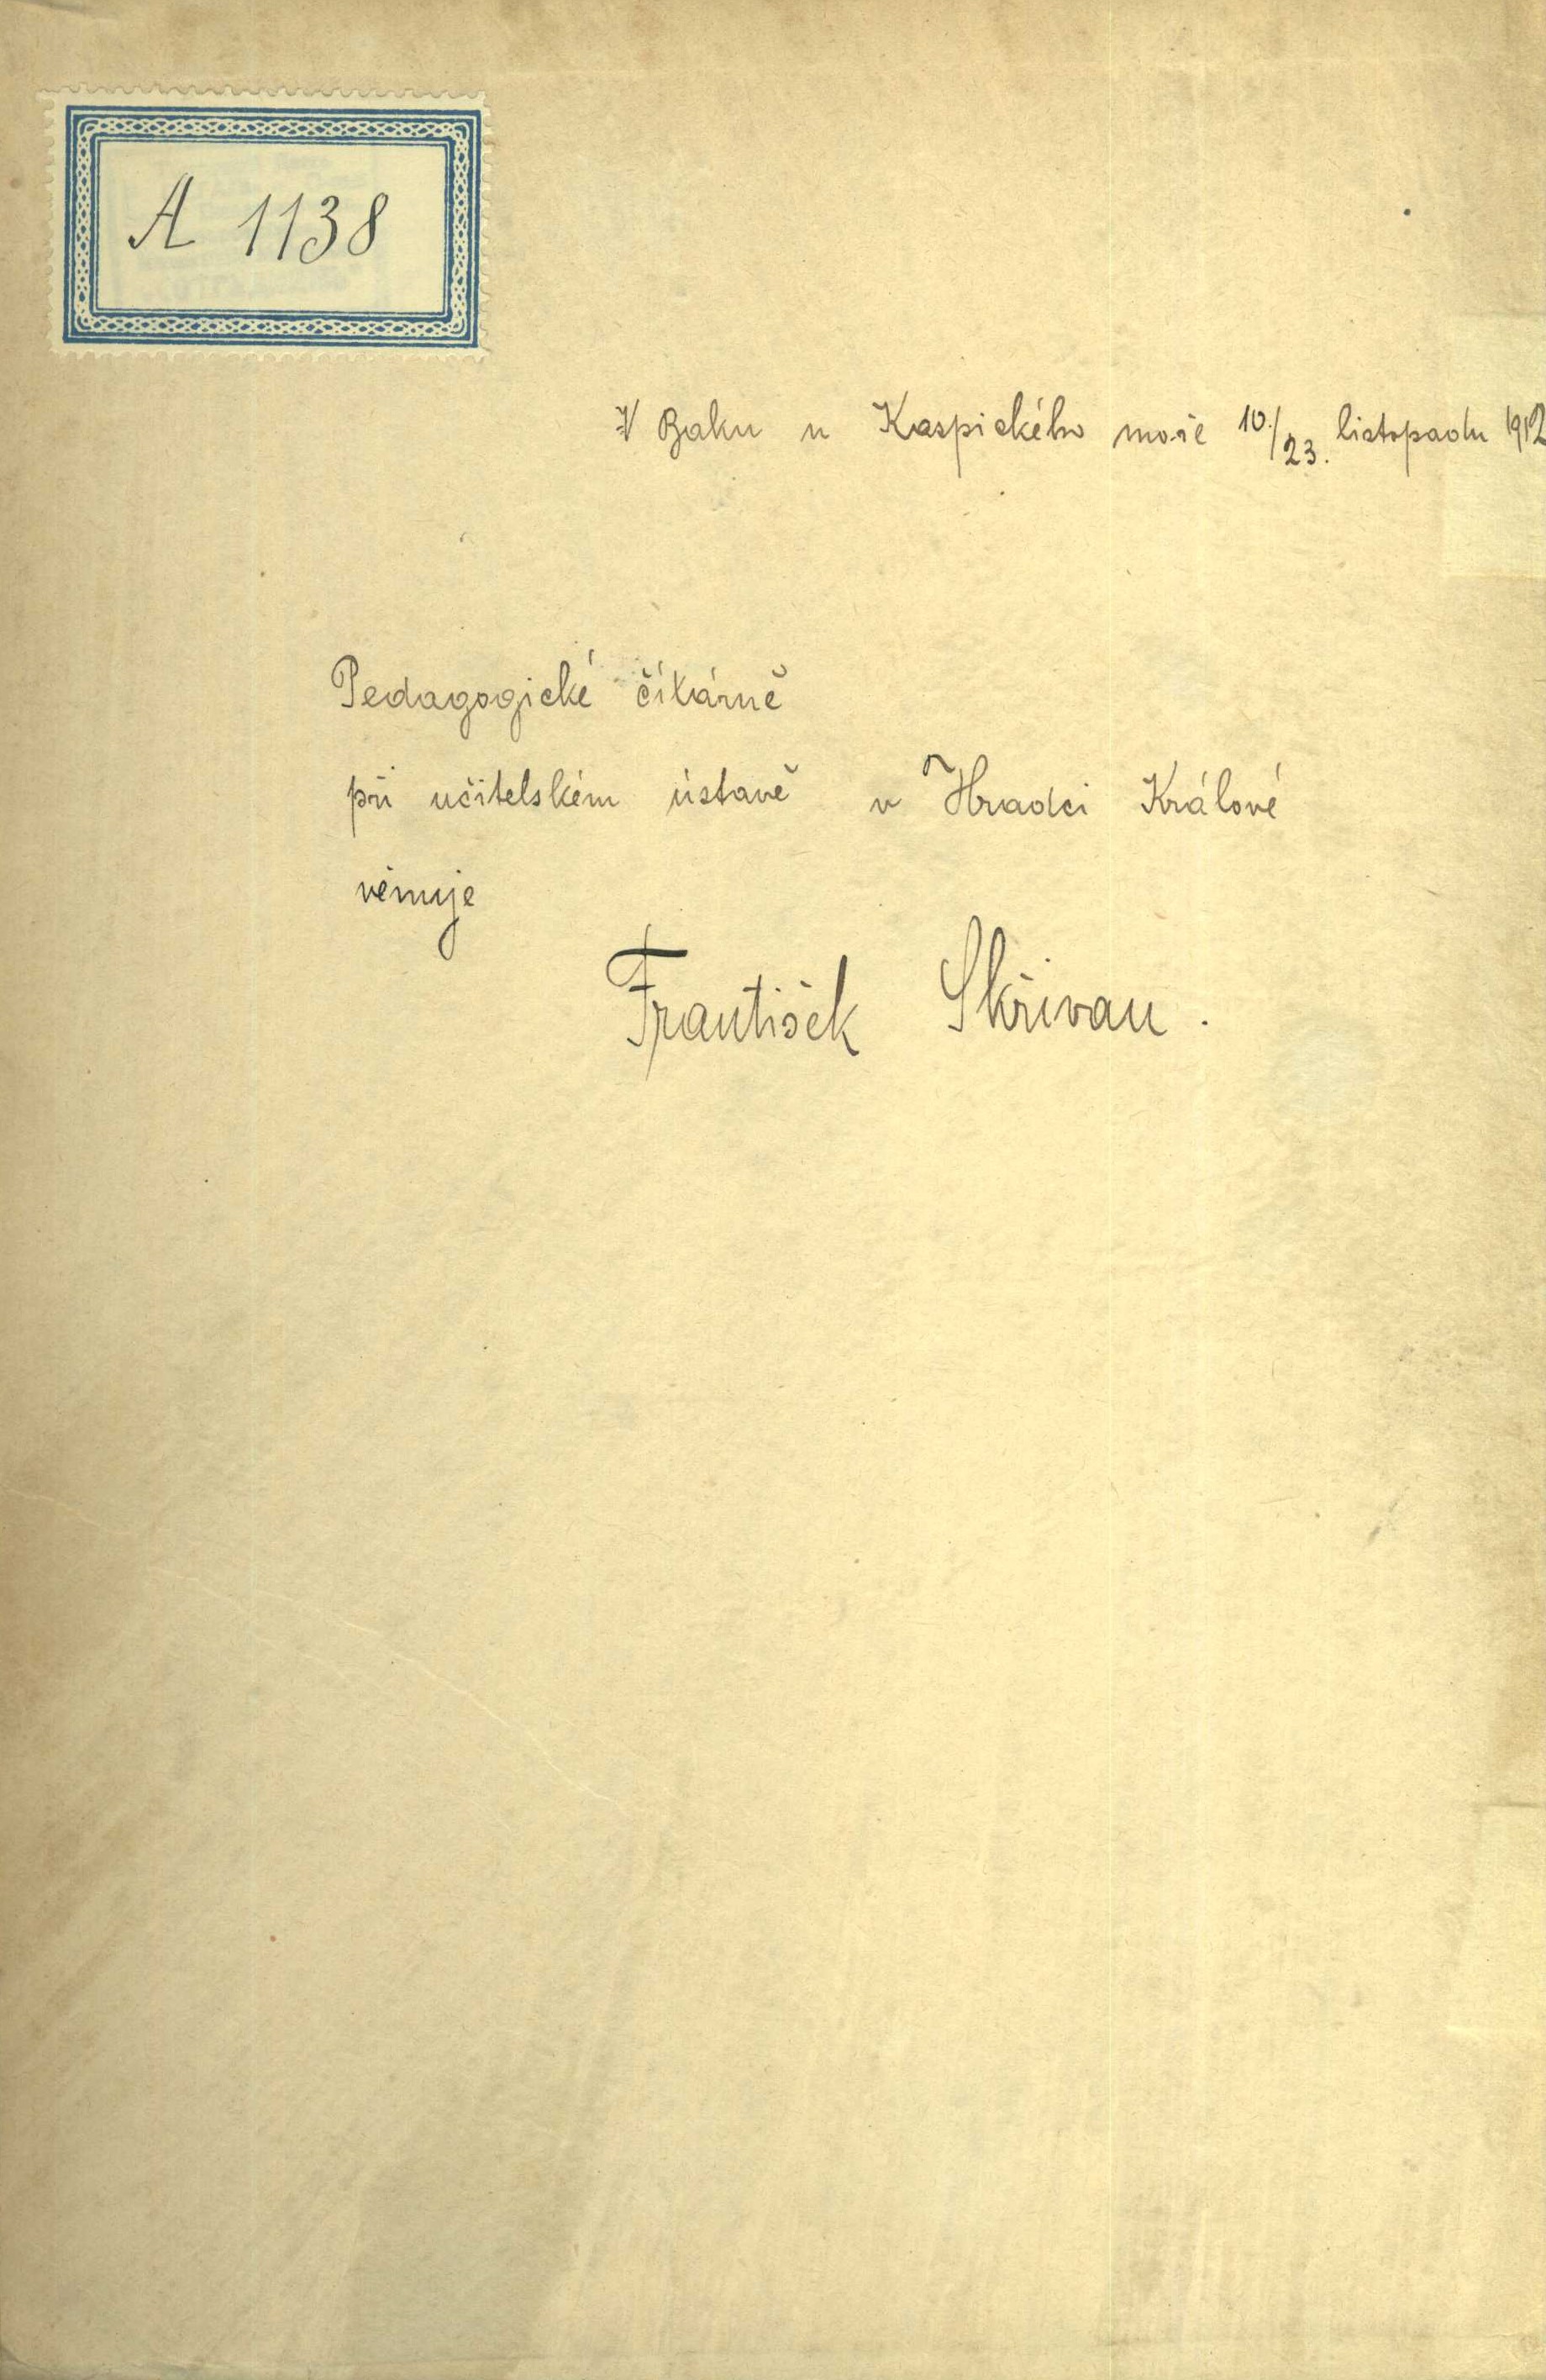 A 1138
V Baku u Kaspického moře 10./23. listopadu 1912
Pedagogické čítárně
při učitelském ústavě v Hradci Králové
věnuje
František Skřivan.